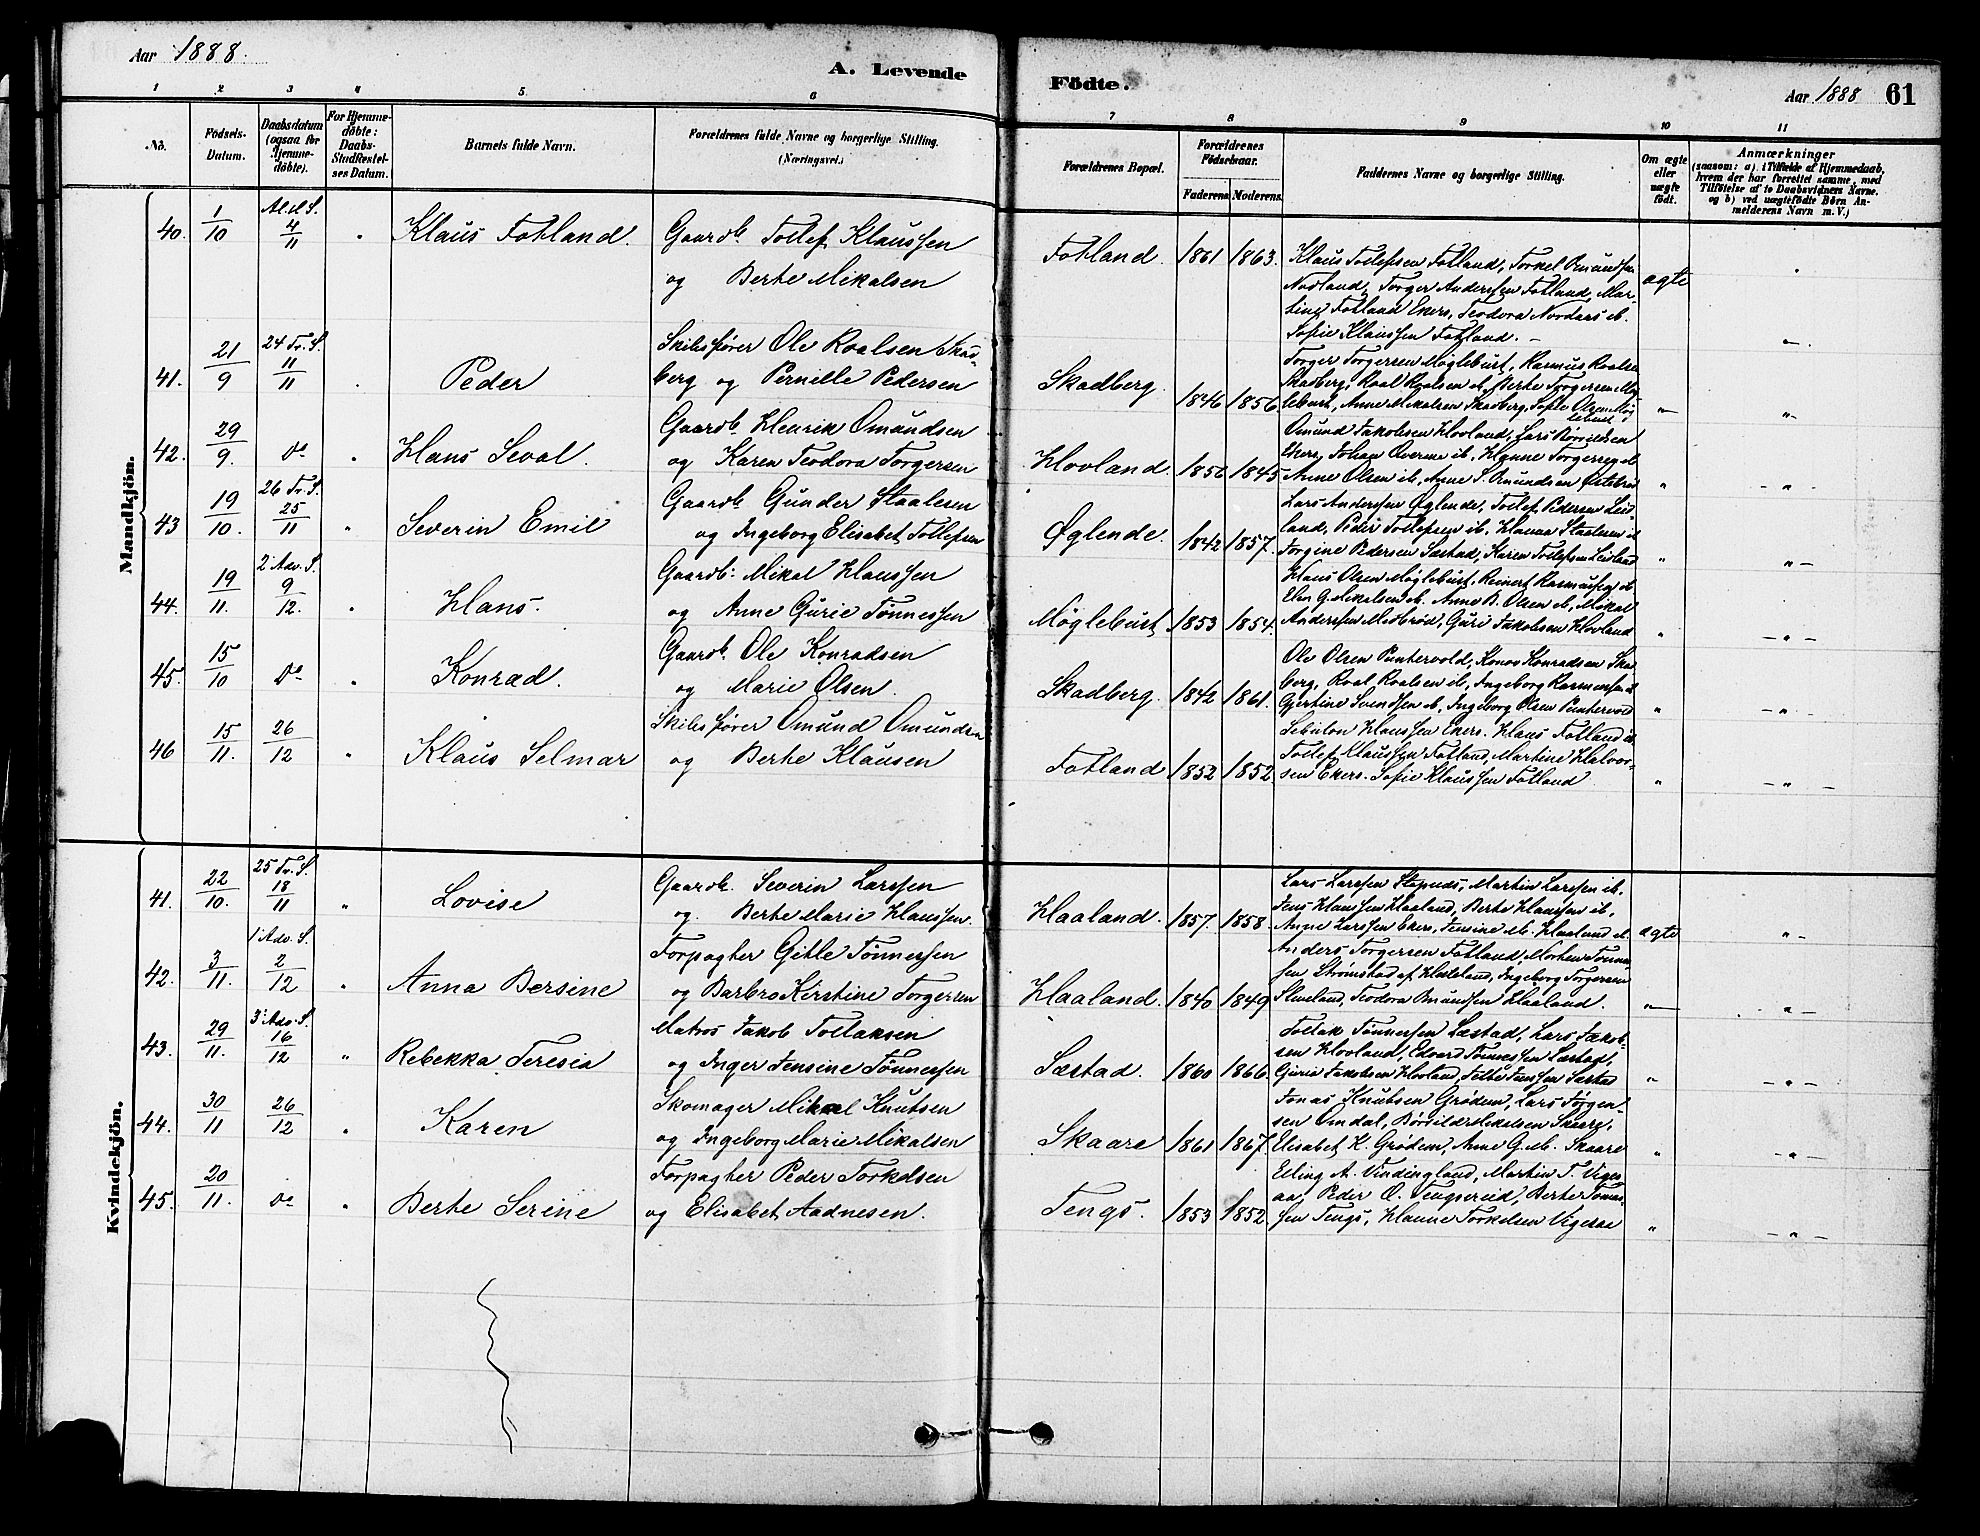 Aar 1888.
A. Levende
Fødte.
Aar 1888
61
1 2 3 4 5. 6
7 8 9 10 11
No.
Fødsels-Datum.
Daabsdatum (ogsaa for Hjemme-døbte).
For Hjemme-døbte: Daabs-Stadfæstel-ses Datum.
Barnets fulde Navn.
Forældrenes fulde Navne og borgerlige Stilling. (Næringsvei.)
Forældrenes Bopæl.
Forældrenes Fødselsaar.
Faderens Moderens.
Faddernes Navne og borgerlige Stilling.
Om ægte eller uægte født.
Anmærkninger
(saasom: a) i Tilfælde af Hjemmedaab, hvem der har forrettet samme, med Tilføielse af to Daabsvidners Navne, og b) ved uægtefødte Børn An-melderens Navn m. V.)
Mandkjön.
40. 1/10 Al. H. S. 4/11 " Klaus Fotland. Gaardb. Tollef Klaussen
og Berte Mikalsen
Fotland 1861 1863. Klaus Tollefsen Fotland, Torkel Omundsen
Nodland, Torger Anderssen Fotland, Mar-
tine Fotland Ekers., Teodora Nordaas ib.
Sofie Klaussen Fotland. ægte
41. 21/9 24 Tr. S. 11/11 " Peder Skibsfører Ole Roalsen Skad-
berg og Pernille Pedersen
Skadberg. 1846 1856. Torger Torgersen Møglebust, Rasmus Roalsen
Skadberg, Roal Roalsen ib, Berte Torgersen Møg-
lebust, Anne Mikalsen Skadberg, Sofie Olsen Møg
lebust "
42. 29/9. do " Hans Seval. Gaardb. Henrik Omundsen
og Karen Teodora Torgersen
Hovland. 1850 1845 Omund Jakobsen Hovland, Lars
Ekers, Johan ib, Hanne Torgersen ib
Anne Olsen ib, Anne S. Omundsen "
43 19/10. 26 Tr. S. 25/11 " Severin Emil Gaardb. Gunder Staalesen
og Ingeborg Elisabet Tollefsen
Øglende. 1842 1857. Lars Anderssen Øglende, Tollef Pedersen Leid-
land, Peder Tollefsen ib. Hanna Staalesen ib
Jorgine Pedersen Sæstad, Karen Tollefsen Leidland "
44. 19/11. 2' Adv. S. 9/12. " Hans. Gaardb. Mikal Hanssen
og Anne Gurie Tønnessen
Møglebust 1853 1854. Hans Olsen Møglebust, Reinert Rasmussen ib
G. Mikalsen ib. Anne B. Olsen ib, Mikal
Anderssen Midbrød, Guri Jakobsen Hovland "
45. 15/10 do " Konrad. Gaardb. Ole Konradsen
og Marie Olsen.
Skadberg. 1842 1861. Ole Olsen Puntervold, Konrad Konradsen Skad-
berg, Roal Roalsen ib, Ingeborg Rasmussen ib
Gjertine Svendsen ib, Ingeborg Olsen Puntervold "
46 15/11. 26/12 " Klaus Selmar Skibsfører Omund Omundsen
og Berte Klausen
Fotland 1852 1852. Sebulon Hanssen Ekers. Klaus Fotland ib.
Tollef Klaussen Fotland, Martine Halvor-
sen Ekers. Sofie Klaussen Fotland "
Kvindekjön.
41. 22/10. 25 Tr. S. 18/11 " Lovise Gaardb. Severin Larssen
og Berte Marie Hanssen.
Haaland. 1857. 1858. Lars Larssen Stapnes, Martin Larssen ib.
Jens Hanssen Haaland, Berte Hanssen ib.
Anne Larssen Ekers., Jensine M. Haaland ib. ægte
42. 3/11. 1' Adv. S. 2/12 " Anna Bersine Forpagter Gitle Tønnessen
og Barbro Kirstine Torgersen
Haaland. 1840 1849 Anders Torgersen Fotland, Morten Tønnes-
sen Strømstad af Helleland, Ingeborg Torgersen
Slevland, Teodora Omundsen Haaland. "
43. 29/11. 3' Adv. S. 16/12 " Rebekka Teresia Matros Jakob Tollaksen
og Inger Jensine Tønnessen
Sæstad. 1860 1866. Tollak Tønnessen Sæstad, Lars Jakob-
sen Hovland, Edvard Tønnessen Sæstad,
Gurie Jakobsen Hovland, Jensen Sæstad "
44. 30/11 26/12 " Karen Skomager Mikael Knutsen
og Ingeborg Marie Mikalsen
Skaare 1861 1867. Jonas Knutsen Grødem, Lars Jørgen-
sen Omdal, Børsilde Mikalsen Skaare,
Elisabet K. Grødem, Anne G. M. Skaare "
45. 20/11. do " Berte Serine Forpagter Peder Torkelsen
og Elisabet Aadnesen.
Tengs. 1853 1852. Elling A. Vindingland, Martin T. Viges-
aa, Peder O. Tengsereid, Berte Tønnes-
sen Tengs, Hanne Torkelsen Vigesaa "